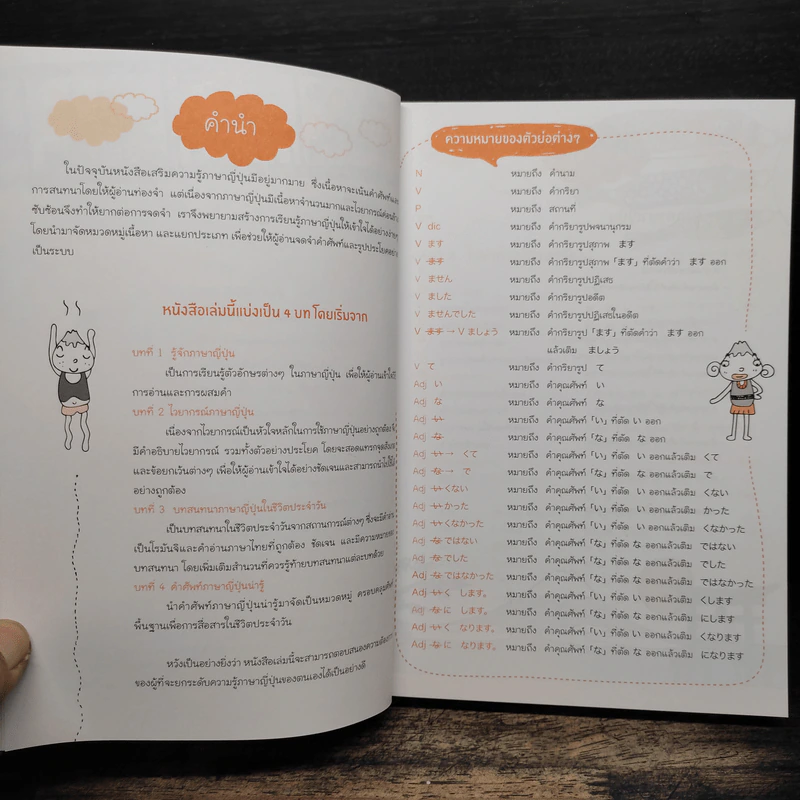 คำนำ
ในปัจจุบันหนังสือเสริมความรู้ภาษาญี่ปุ่นมีอยู่มากมาย ซึ่งเนื้อหาจะเน้นคำศัพท์และ
การสนทนาโดยให้ผู้อ่านท่องจำ แต่เนื่องจากภาษาญี่ปุ่นมีเนื้อหาจำนวนมากและไวยากรณ์ค่อนข้าง
ซับซ้อนจึงทำให้ยากต่อการจดจำ เราจึงพยายามสร้างการเรียนรู้ภาษาญี่ปุ่นให้เข้าใจได้อย่างง่ายๆ
โดยนำมาจัดหมวดหมู่เนื้อหา และแยกประเภท เพื่อช่วยให้ผู้อ่านจดจำคำศัพท์และรูปประโยคอย่าง
เป็นระบบ
หนังสือเล่มนี้แบ่งเป็น 4 บท โดยเริ่มจาก
บทที่ 1 รู้จักภาษาญี่ปุ่น
เป็นการเรียนรู้ตัวอักษรต่างๆ ในภาษาญี่ปุ่น เพื่อให้ผู้อ่านเข้าใจถึง
การอ่านและการผสมคำ
บทที่ 2 ไวยากรณ์ภาษาญี่ปุ่น
เนื่องจากไวยากรณ์เป็นหัวใจหลักในการใช้ภาษาญี่ปุ่นอย่างถูกต้อง จึง
มีคำอธิบายไวยากรณ์ รวมทั้งตัวอย่างประโยค โดยจะสอดแทรกจุดสังเกต
และข้อยกเว้นต่างๆ เพื่อให้ผู้อ่านเข้าใจได้อย่างชัดเจนและสามารถนำไปใช้ได้
อย่างถูกต้อง
บทที่ 3 บทสนทนาภาษาญี่ปุ่นในชีวิตประจำวัน
เป็นบทสนทนาในชีวิตประจำวันจากสถานการณ์ต่างๆ ซึ่งจะมีคำอ่าน
เป็นโรมันจิและคำอ่านภาษาไทยที่ถูกต้อง ชัดเจน และมีความหมายของ
บทสนทนา โดยเพิ่มเติมสำนวนที่ควรรู้ท้ายบทสนทนาแต่ละบทด้วย
บทที่ 4 คำศัพท์ภาษาญี่ปุ่นน่ารู้
นำคำศัพท์ภาษาญี่ปุ่นน่ารู้มาจัดเป็นหมวดหมู่ ครอบคลุมศัพท์
พื้นฐานเพื่อการสื่อสารในชีวิตประจำวัน
หวังเป็นอย่างยิ่งว่า หนังสือเล่มนี้จะสามารถตอบสนองความต้องการ
ของผู้ที่จะยกระดับความรู้ภาษาญี่ปุ่นของตนเองได้เป็นอย่างดี
ความหมายของตัวย่อต่างๆ
N หมายถึง คำนาม
V หมายถึง คำกริยา
P หมายถึง สถานที่
V dic หมายถึง คำกริยารูปพจนานุกรม
V ます หมายถึง คำกริยารูปสุภาพ ます
V ます หมายถึง คำกริยารูปสุภาพ「ます」ที่ตัดคำว่า ます ออก
V ません หมายถึง คำกริยารูปปฏิเสธ
V ました หมายถึง คำกริยารูปอดีต
V ませんでした หมายถึง คำกริยารูปปฏิเสธในอดีต
V ます → V ましょう หมายถึง คำกริยารูป「ます」ที่ตัดคำว่า ます ออก
แล้วเติม ましょう
V て หมายถึง คำกริยารูป て
Adj い หมายถึง คำคุณศัพท์ い
Adj な หมายถึง คำคุณศัพท์ な
Adj い หมายถึง คำคุณศัพท์「い」ที่ตัด い ออก
Adj な หมายถึง คำคุณศัพท์「な」ที่ตัด な ออก
Adj い → くて หมายถึง คำคุณศัพท์「い」ที่ตัด い ออกแล้วเติม くて
Adj な → で หมายถึง คำคุณศัพท์「な」ที่ตัด な ออกแล้วเติม で
Adj いくない หมายถึง คำคุณศัพท์「い」ที่ตัด い ออกแล้วเติม くない
Adj いかった หมายถึง คำคุณศัพท์「い」ที่ตัด い ออกแล้วเติม かった
Adj いくなかった หมายถึง คำคุณศัพท์「い」ที่ตัด い ออกแล้วเติม くなかった
Adj なではない หมายถึง คำคุณศัพท์「な」ที่ตัด な ออกแล้วเติม ではない
Adj なでした หมายถึง คำคุณศัพท์「な」ที่ตัด な ออกแล้วเติม でした
Adj なではなかった หมายถึง คำคุณศัพท์「な」ที่ตัด な ออกแล้วเติม ではなかった
Adj いく します。 หมายถึง คำคุณศัพท์「い」ที่ตัด い ออกแล้วเติม くします
Adj なに します。 หมายถึง คำคุณศัพท์「な」ที่ตัด な ออกแล้วเติม にします
Adj いく なります。 หมายถึง คำคุณศัพท์「い」ที่ตัด い ออกแล้วเติม くなります
Adj なに なります。 หมายถึง คำคุณศัพท์「な」ที่ตัด な ออกแล้วเติม になります